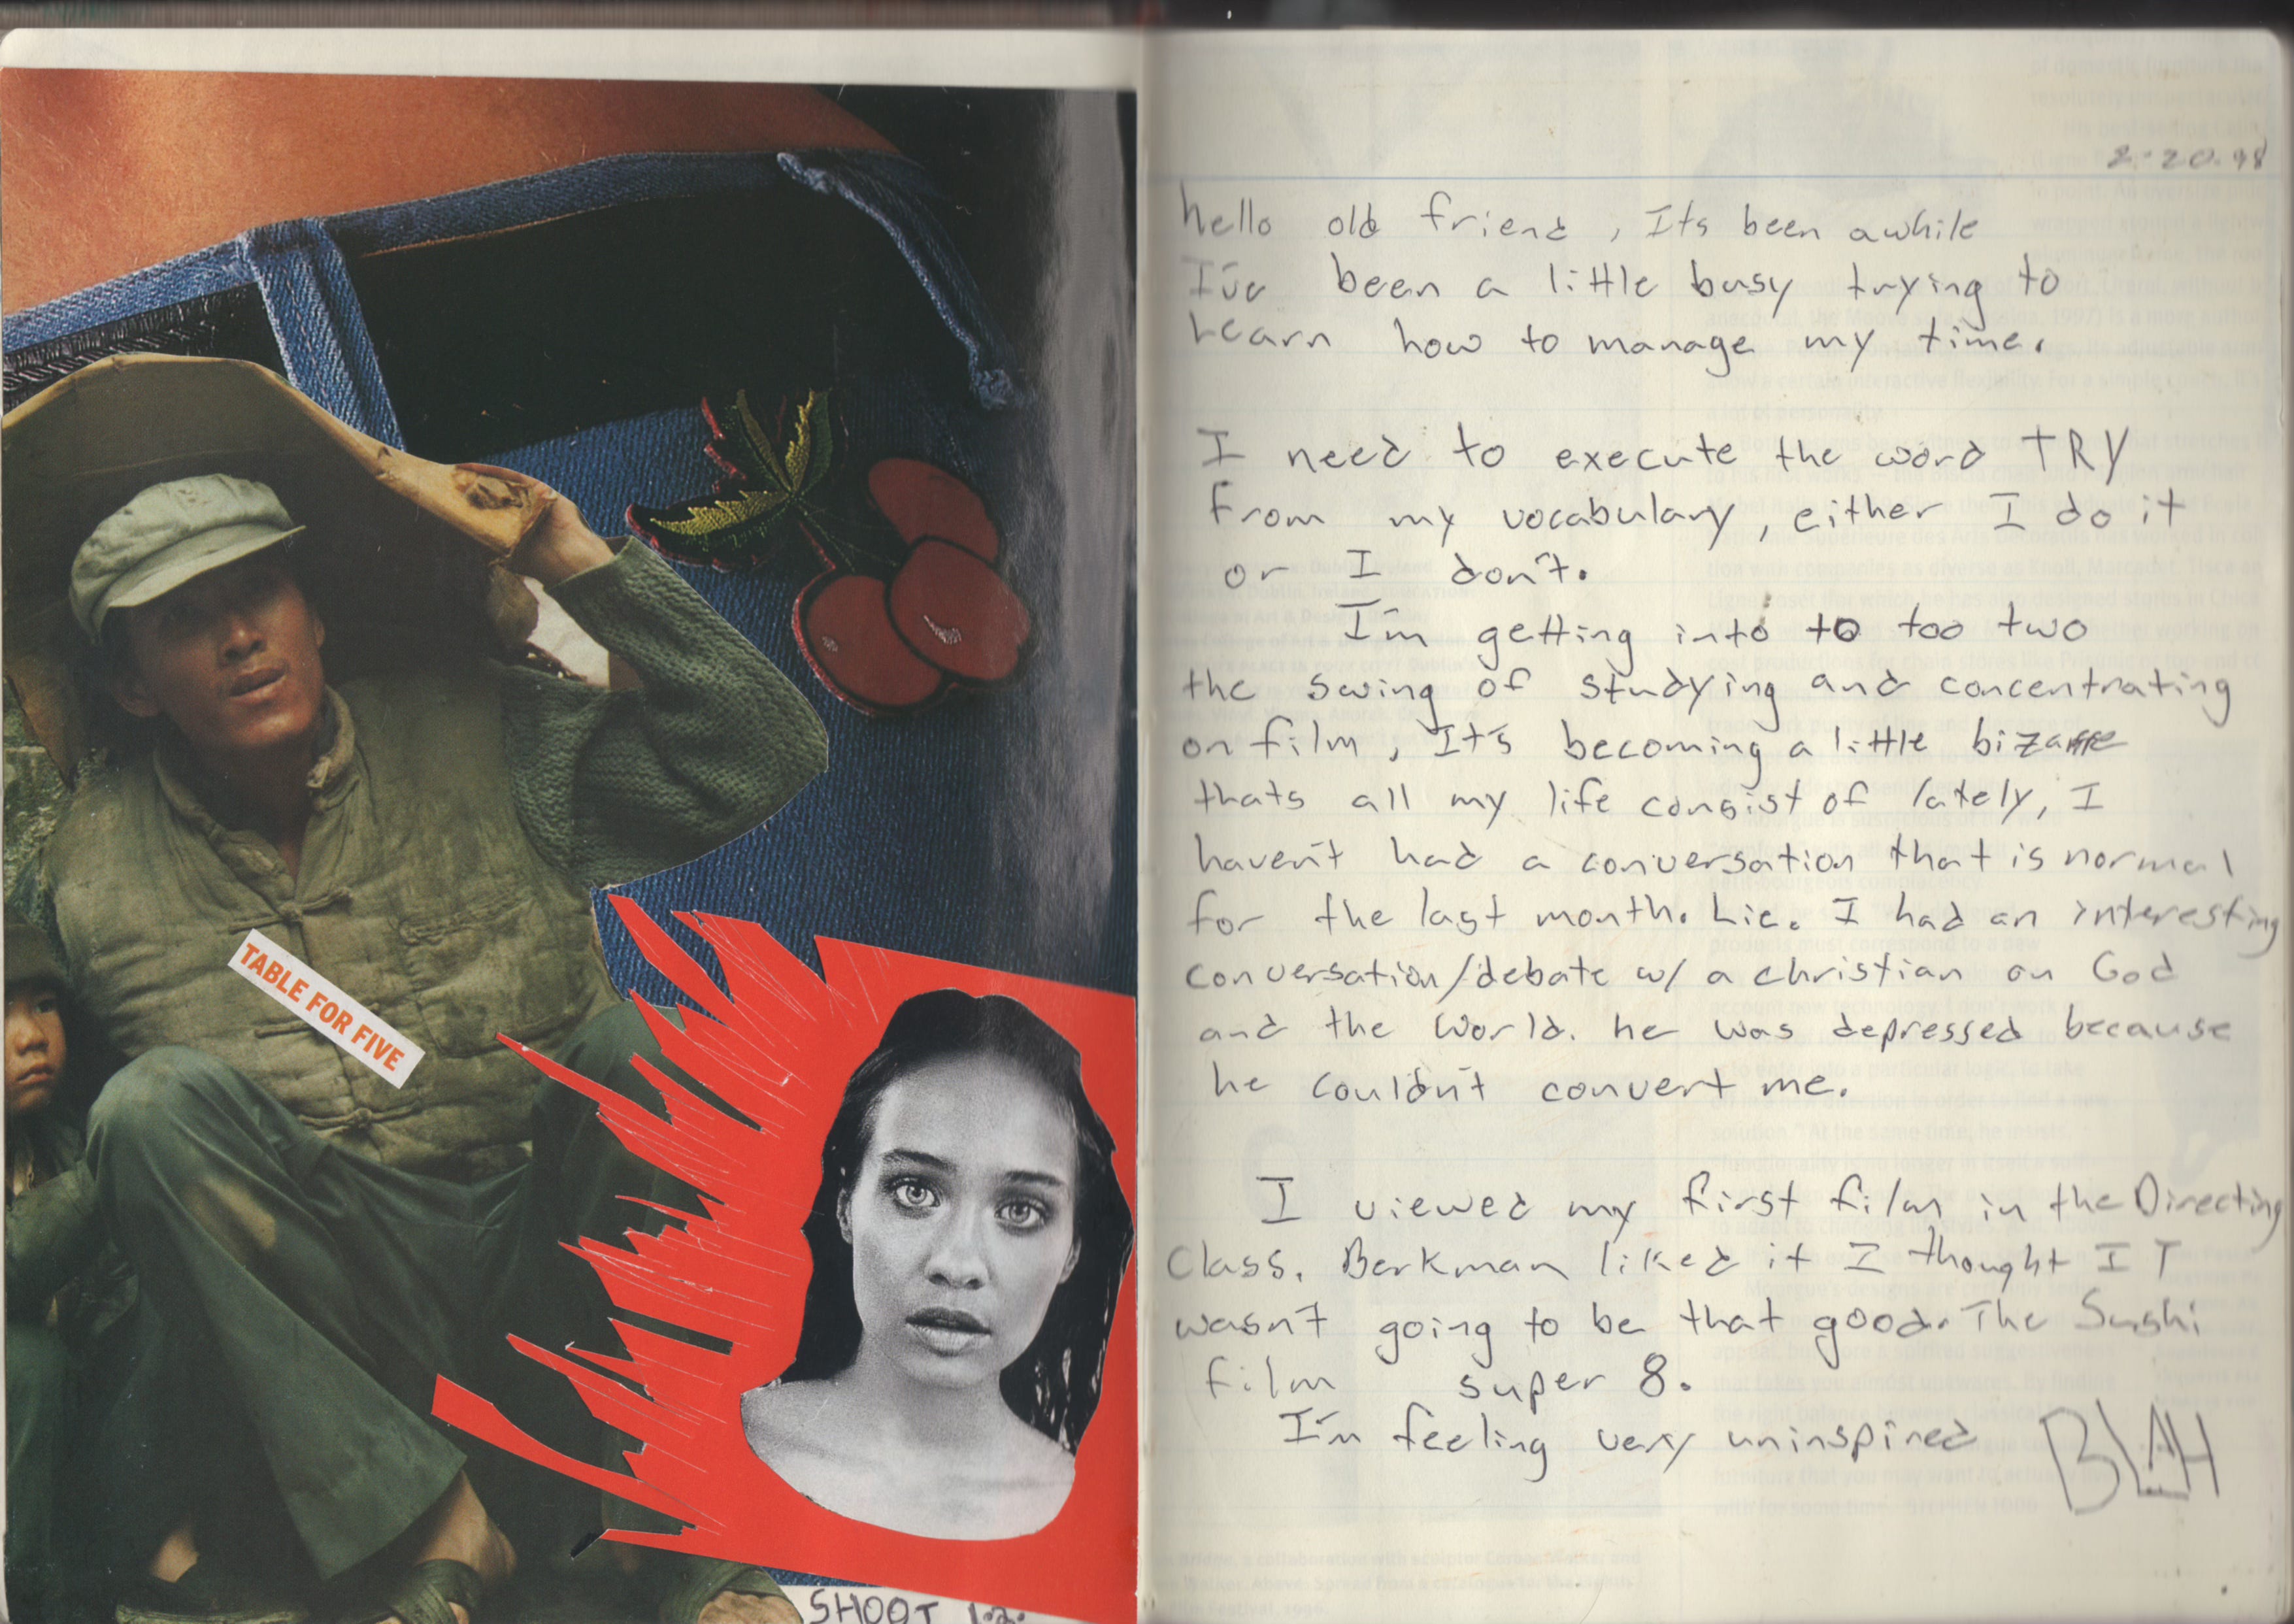 TABLE FOR FIVE
SHOOT 1.2.
2-20.98
hello old friend, Its been awhile
I've been a little busy trying to
Learn how to manage my time.
I need to execute the word TRY
from my vocabulary, either I do it
or I don't.
I'm getting into to too two
the swing of studying and concentrating
on film, It's becoming a little bizarre
thats all my life consist of lately, I
haven't had a conversation that is normal
for the last month. Lie. I had an interesting
conversation/debate w/ a christian on God
and the World. he was depressed because
he couldn't convert me.
I viewed my first film in the Directing
Class. Berkman liked it I thought IT
wasn't going to be that good. The Sushi
film super 8.
I'm feeling very uninspired BLAH